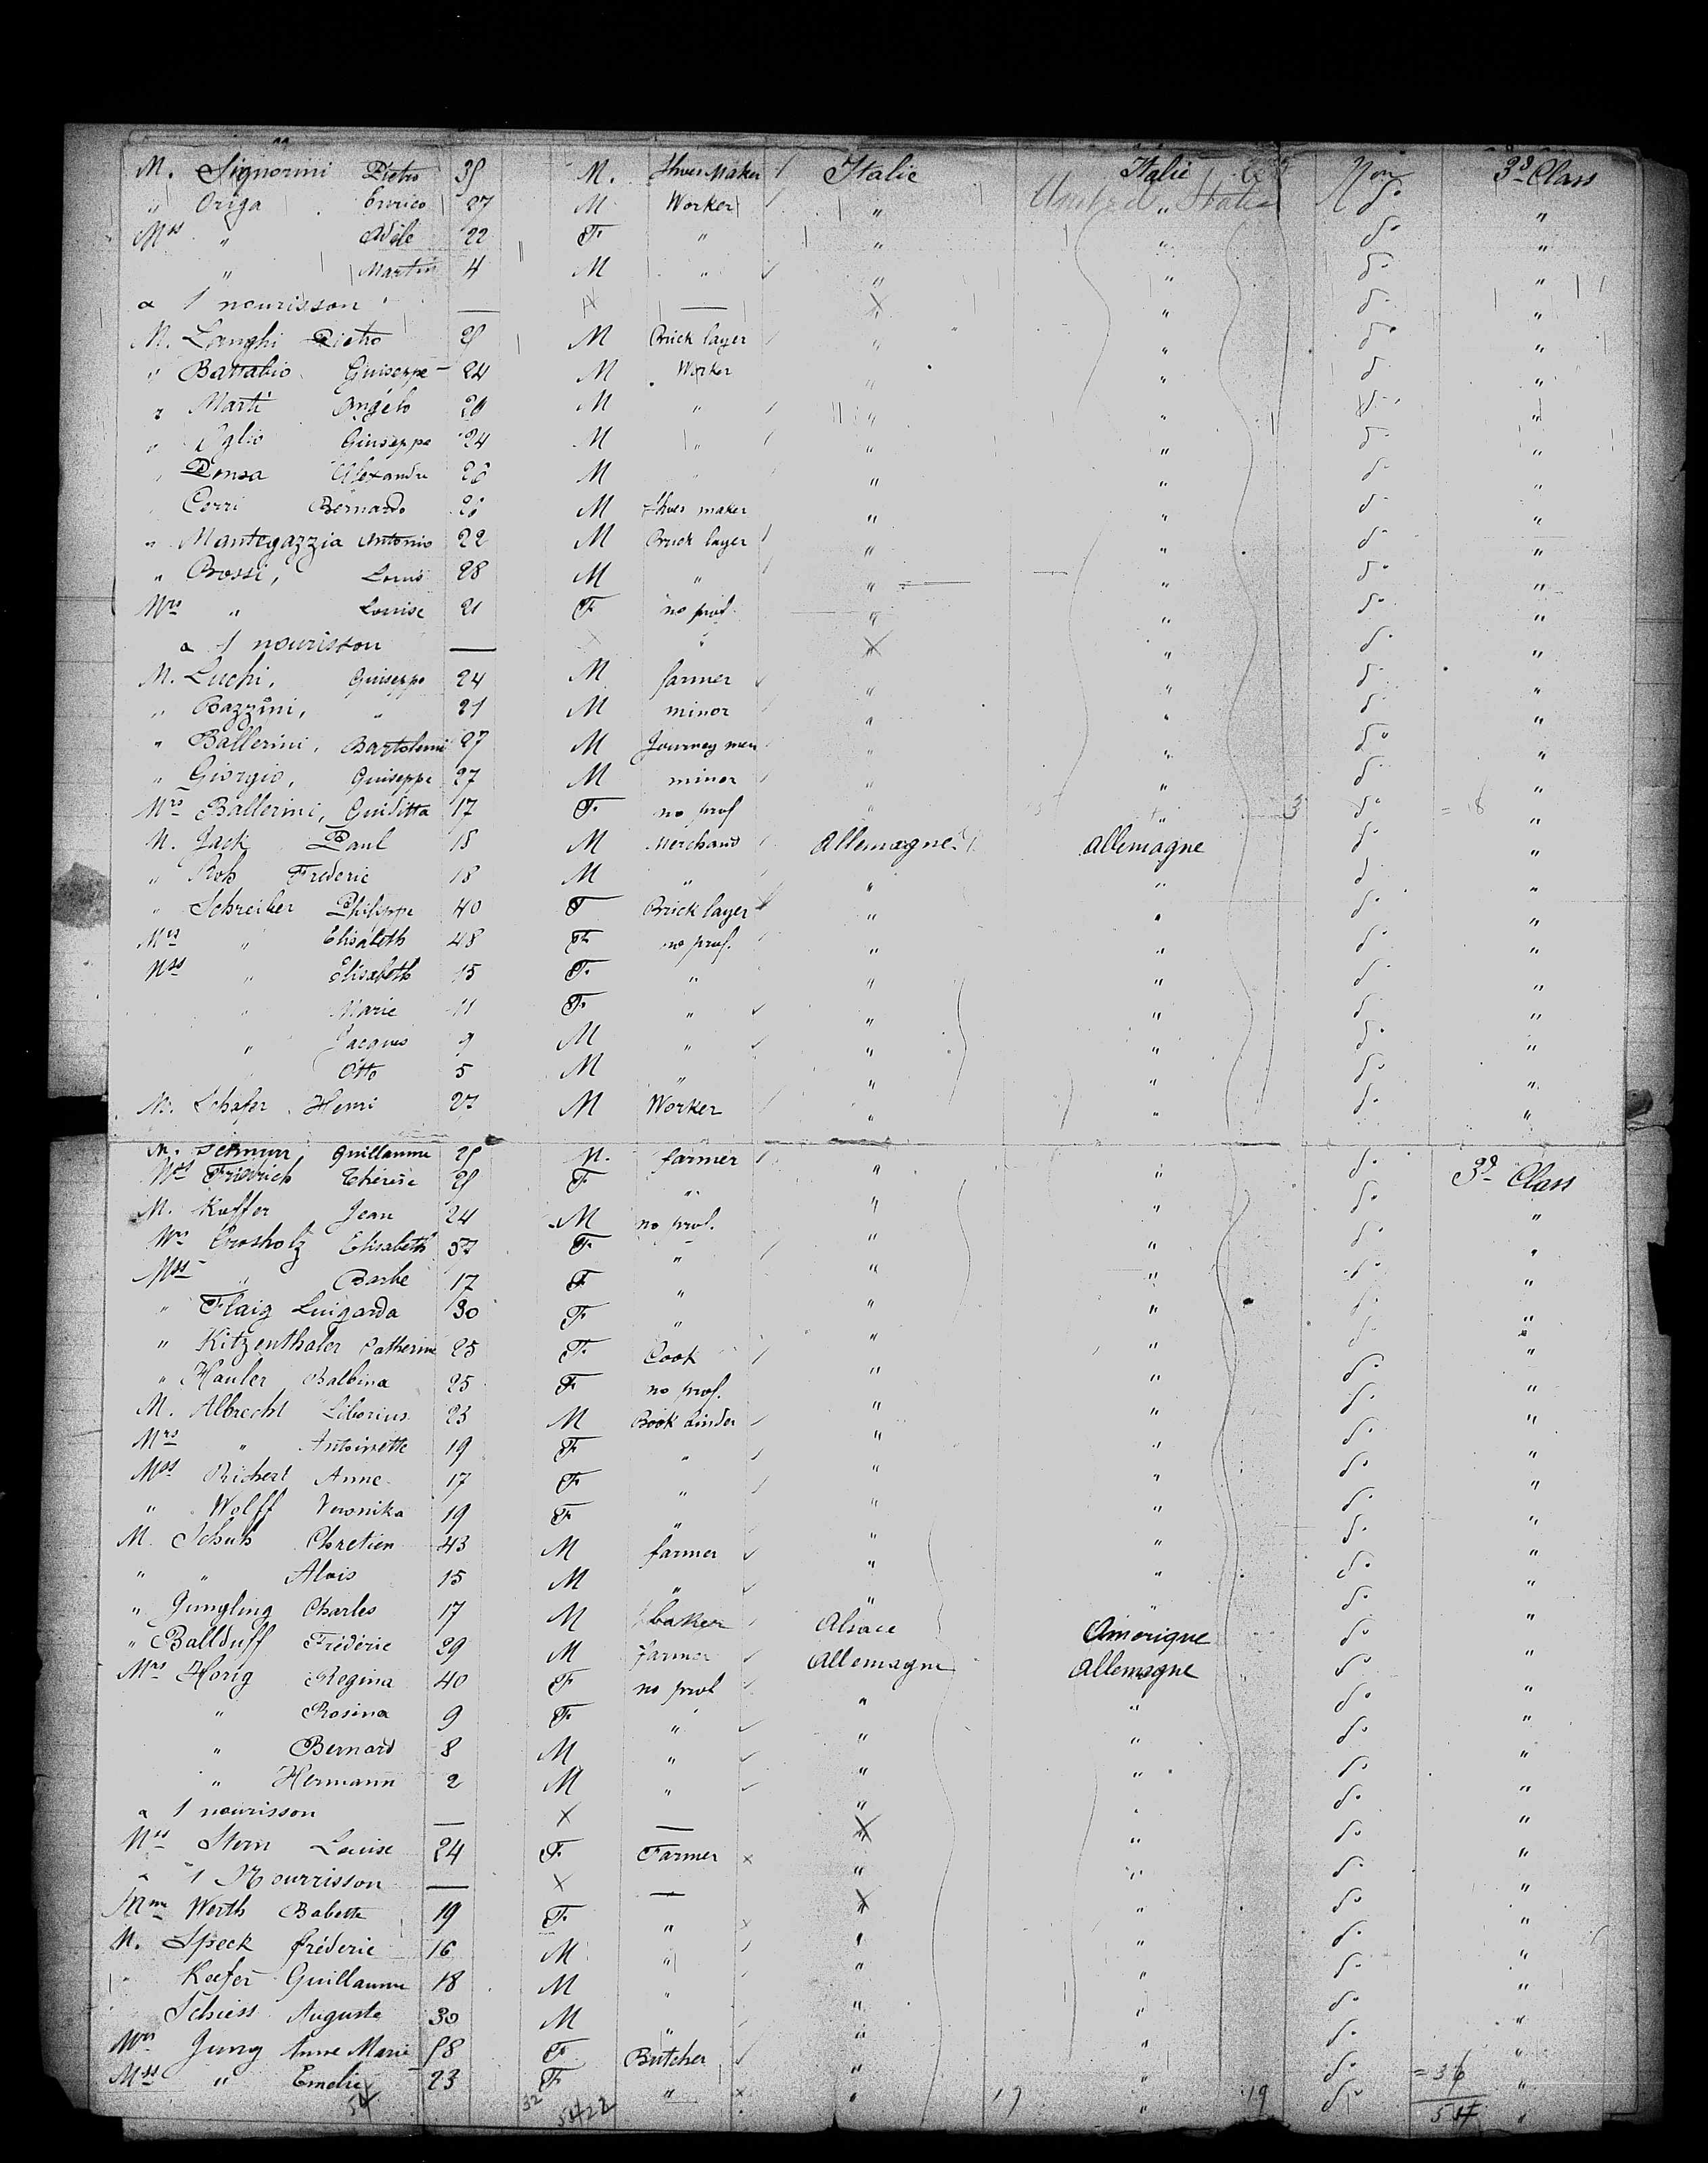 M. Signorini Pietro 35 M. Shoes Maker Italie Italie Non 3d Class
" Origa Enrico 27 M Worker " United " States do "
Mrs " Adèle 22 F. " " " do "
" Martin 4 M " " " do "
a 1 nourisson — X — X " do "
M. Langhi Pietro 25 M Brick layer " " do "
" Battabio Guiseppe 24 M Worker " " do "
" Marti Angelo 20 M " " " do "
" Iglio Giuseppe 24 M " " " do "
" Donsa Alexandre 26 M " " " do "
" Corri Bernardo 26 M Shoes maker " " do "
" Mantegazzia Antonio 22 M Brick layer " " do "
" Bossi, Louis 28 M " " " do "
Mrs " Louise 21 F no prof. " " do "
a 1 nourisson — X " X " do "
M. Luchi, Guiseppe 24 M farmer " " do "
" Bazzini, " 21 M minor " " do "
" Ballerini, Bartolemi 27 M Journey men " " do "
" Giorgio, Guiseppe 27 M minor " " do "
Mrs Ballerini, Guiditta 17 F. no prof " " 3 do = 18 "
M. Jack Paul 18 M Merchand Allemagne Allemagne do "
" Rob Frederic 18 M " " " do "
" Schreiber Philippe 40 F Brick layer " " do "
Mrs " Elisabeth 48 F. no prof. " " do "
Mss " Elisabeth 15 F. " " " do "
" Marie 11 F. " " " do "
" Jacques 9 M " " " do "
Otto 5 M " " " do "
M. Schafer Henri 27 M Worker " " do "
M. Guillaume 25 M. farmer " " do 3d Class
Mrs Friedrich Thérèse 25 F " " " do "
M. Kuffer Jean 24 M no prof. " " do "
Mrs Grosholz Elisabeth 57 F. " " " do "
Mss " Barbe 17 F " " " do "
" Flaig Luigarda 30 F " " " do "
" Kitzenthaler Catherine 25 F. Cook " " do "
" Hauler Balbina 25 F no prof. " " do "
M. Albrecht Liborius 23 M Book binder " " do "
Mrs " Antoinette 19 F " " " do "
Mss Richert Anne 17 F " " " do "
" Wolff Veronika 19 F " " " do "
M. Schuh Chretien 43 M farmer " " do "
" " Alois 15 M " " " do "
" Jungling Charles 17 M baker Alsace Amerique do "
" Ballduff Fréderic 29 M farmer Allemagne Allemagne do "
Mrs Honig Regina 40 F no prof " " do "
" Rosina 9 F " " " do "
" Bernard 8 M " " " do "
" Hermann 2 M " " " do "
a 1 nourisson — X — X " do "
Mrs Stern Louise 24 F Farmer " " do "
a 1 Nourrisson — X — X " do "
Mme Werth Babette 19 F " " " do "
M. Speck fréderic 16 M " " " do "
Keefer Guillaume 18 M " " " do "
Schiess Auguste 30 M " " " do "
Mrs Jung Anne Marie 58 F. Butcher " " do "
Mss " Emelie 23 F " " 19 " 19 do = 36 "
54 32 22 54